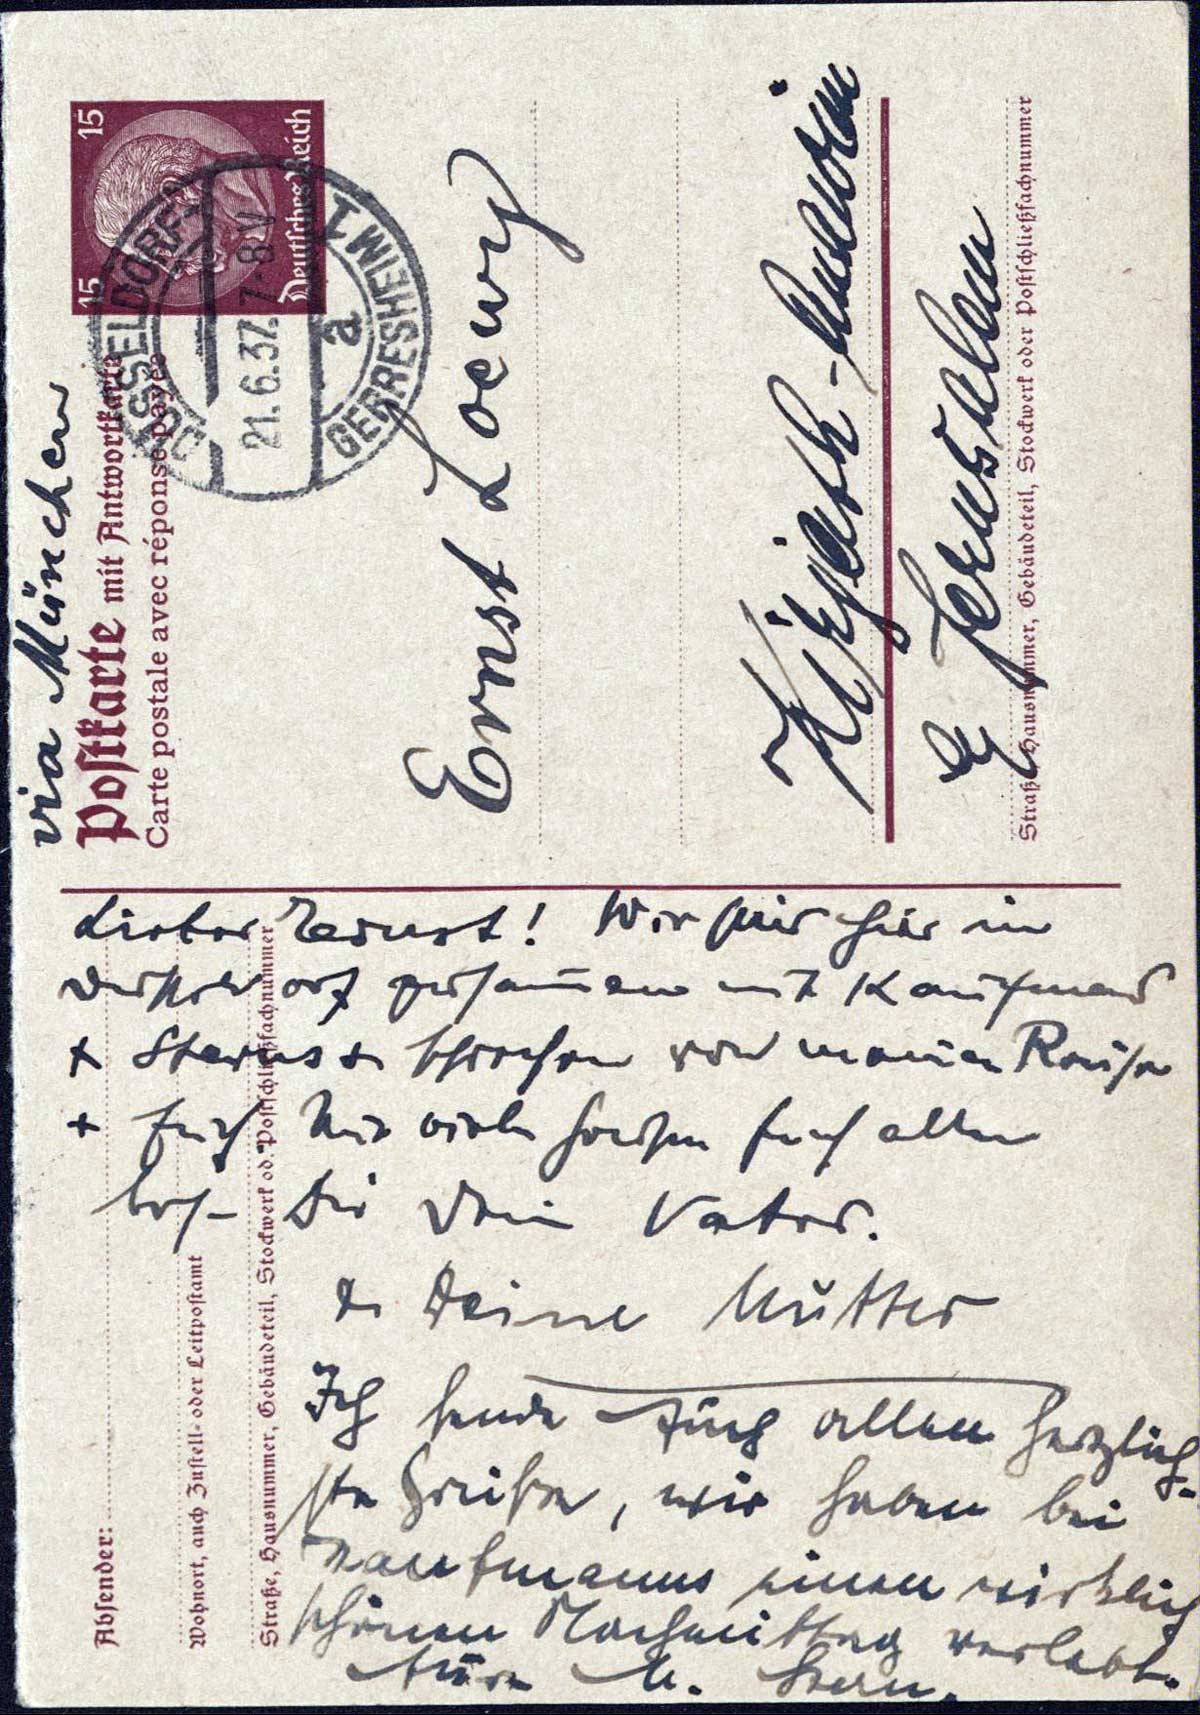 via München
Postkarte mit Antwortkarte
Carte postale avec réponse payée
15 15
Deutsches Reich
DÜSSELDORF-
GERRESHEIM 1
21.6.37. 7-8 V
a
Ernst Loewy
Kirjath-Anavim
Jerusalem
Straße, Hausnummer, Gebäudeteil, Stockwerk oder Postschließfachnummer
Lieber Ernst! Wir sind hier in
Düsseldorf zusammen mit Kaufmanns
+ Sterns + sprechen von meiner Reise
+ Euch. Viele Euch allen
Dir Dein Vater.
+ Deine Mutter
Ich sende Euch allen herzlich-
ste Grüße, wir haben bei
Kaufmanns einen wirklich
schönen Nachmittag verlebt.
M. Stern.
Absender:
Wohnort, auch Zustell- oder Leitpostamt
Straße, Hausnummer, Gebäudeteil, Stockwerk od. Postschließfachnummer